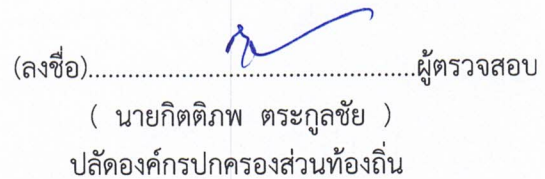 (ลงชื่อ)................................................ผู้ตรวจสอบ
( นายกิตติภพ ตระกูลชัย )
ปลัดองค์กรปกครองส่วนท้องถิ่น